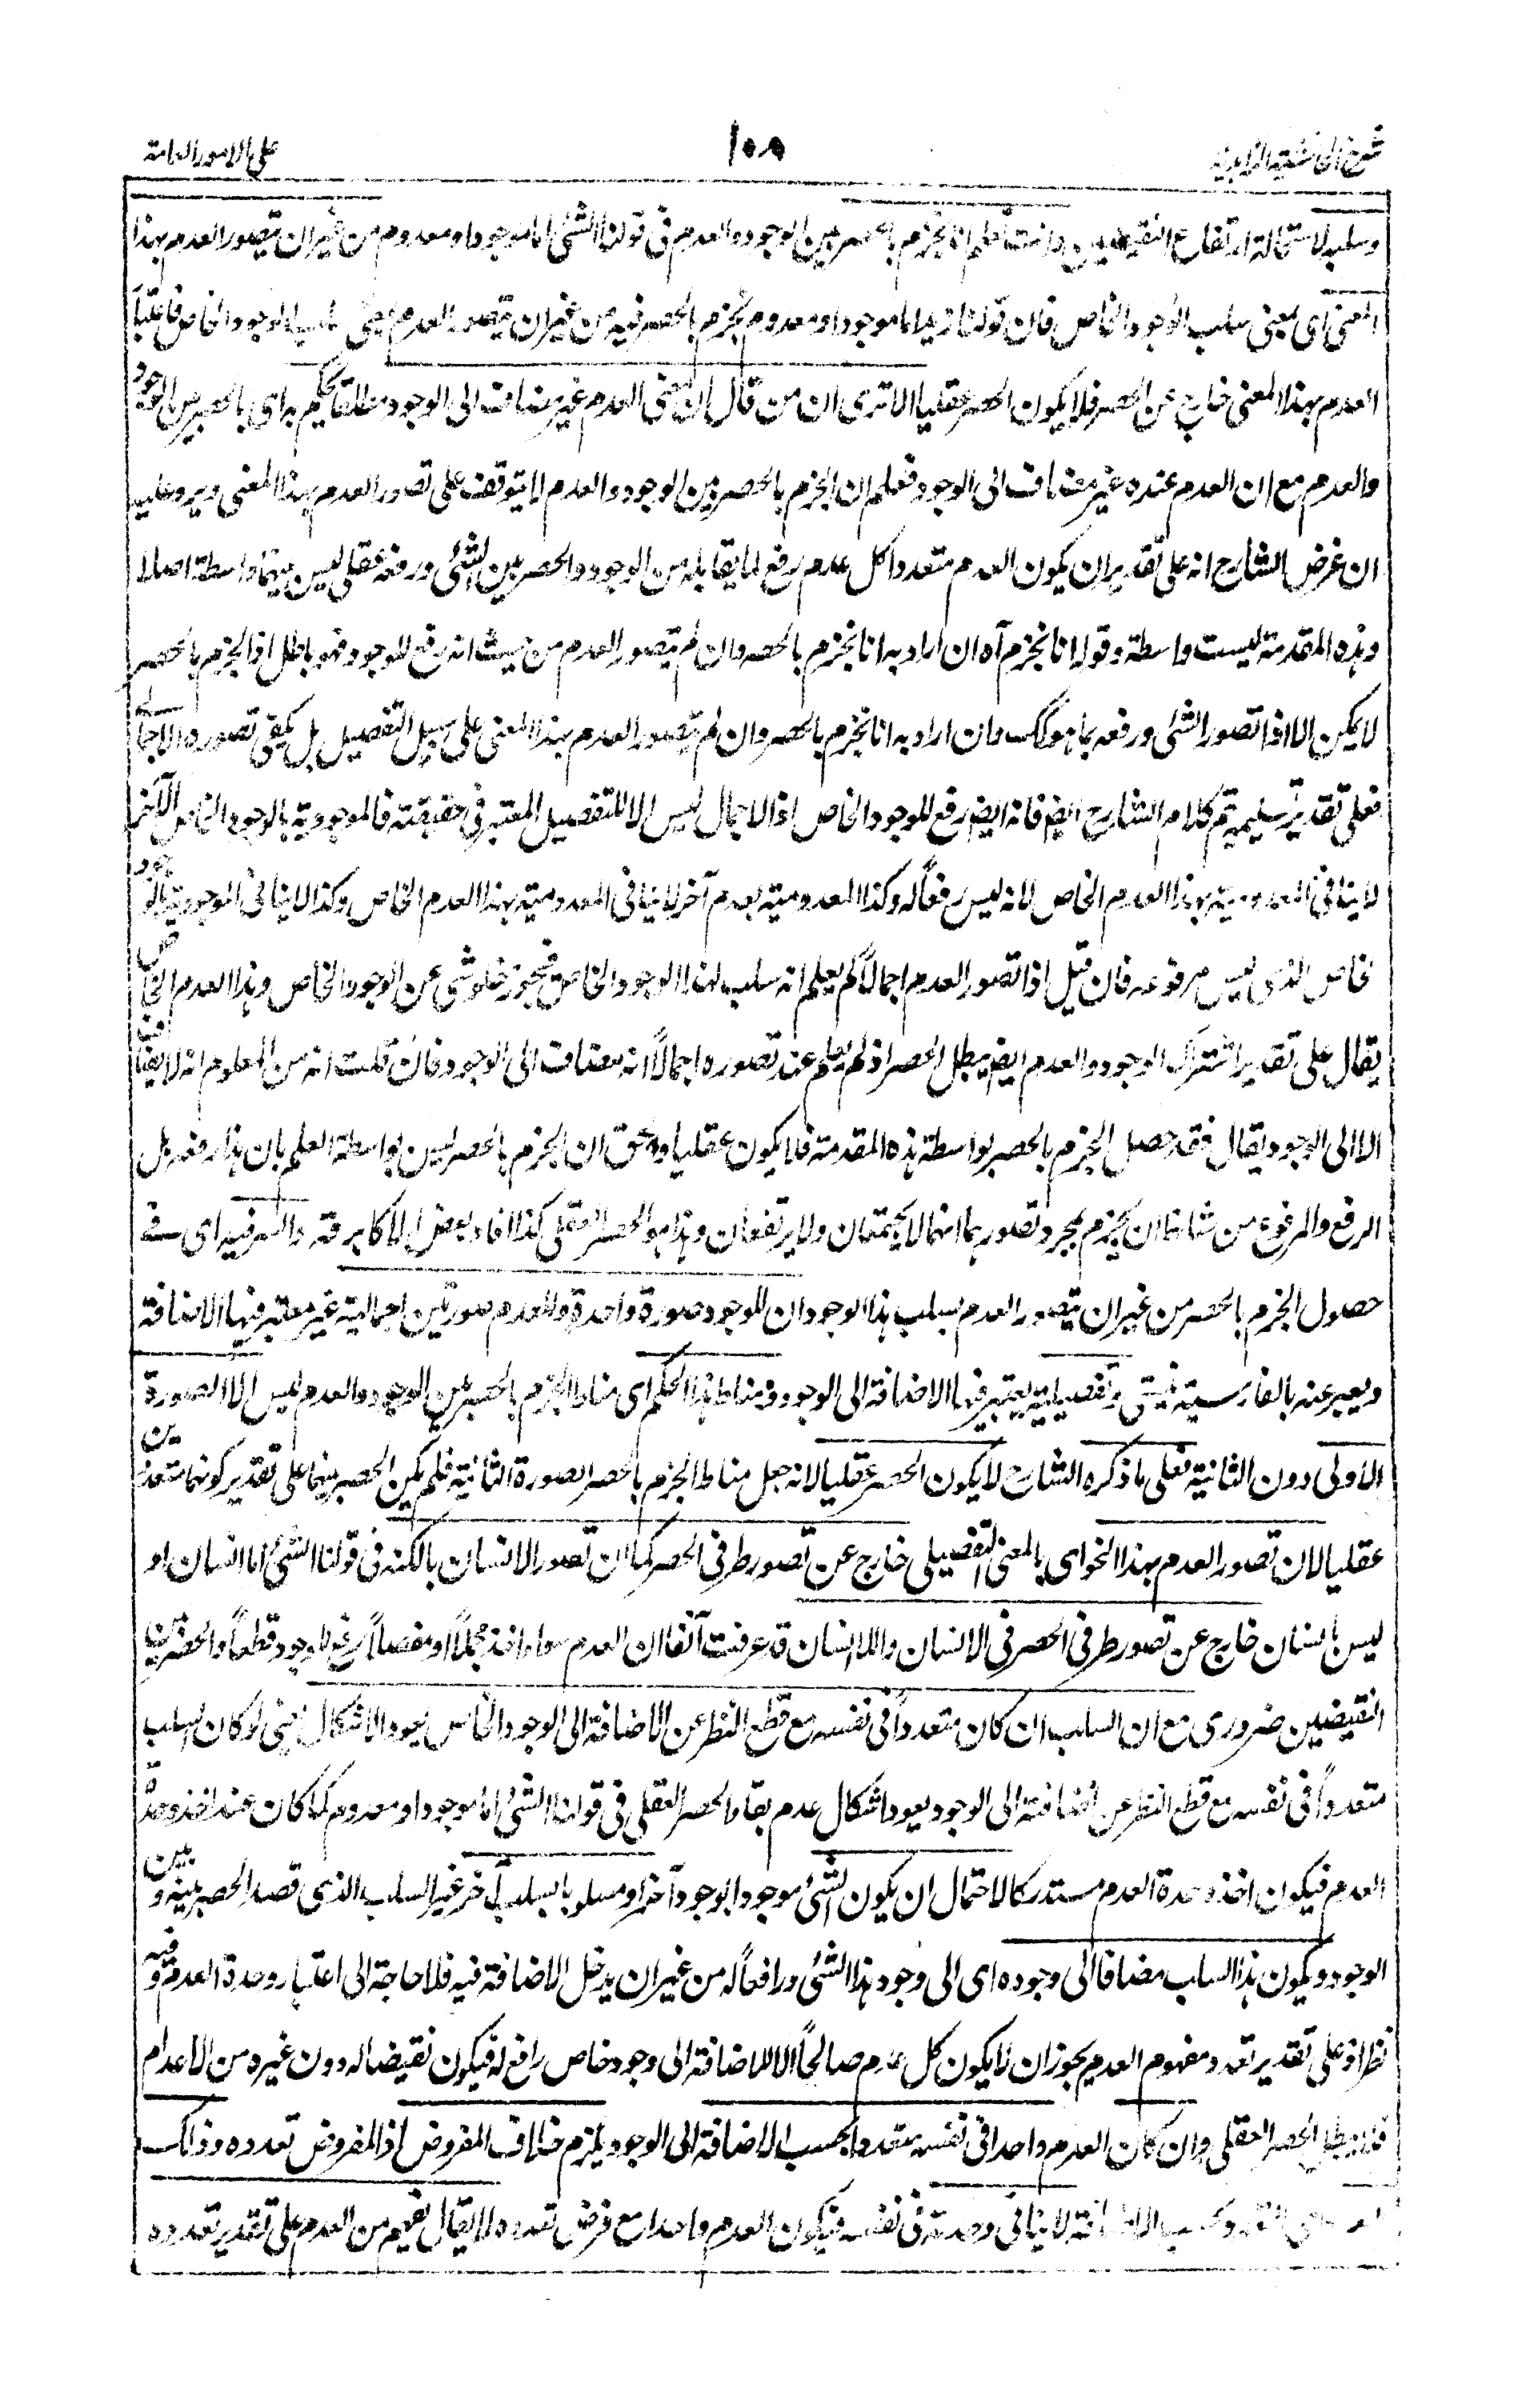 شرح الحاشية الزاهدية
١٠٨
على الامور العامة
وسلبه لاستحالة ارتفاع النقيضين وانت تعلم انا نجزم بالحصر بين الوجود والعدم فى قولنا الشئ اما موجود او معدوم من غير ان يتصور العدم بهذا
المعنى اى معنى سلب الوجود الخاص فان قولنا زيد اما موجود او معدوم نجزم بالحصر فيه من غير ان يتصور العدم بمعنى سلب الوجود الخاص فاعتبار
العدم بهذا المعنى خارج عن الحصر فلا يكون الحصر عقليا الا ترى ان من قال ان معنى العدم غير مضاف الى الوجود مطلقا يحكم به اى بالحصر بين الوجود
والعدم مع ان العدم عنده غير مضاف الى الوجود فعلم ان الجزم بالحصر بين الوجود والعدم لا يتوقف على تصور العدم بهذا المعنى ويرد عليه
ان غرض الشارح انه على تقدير ان يكون العدم متعددا كل عدم رفع لما يقابله من الوجود والحصر بين الشئ ورفعه عقلى ليس بينهما واسطة اصلا
وهذه المقدمة ليست واسطة وقوله انا نجزم آه ان اراد به انا نجزم بالحصر وان لم يتصور العدم من حيث انه رفع للوجود فهو باطل اذ الجزم بالحصر
لا يمكن الا اذا تصور الشئ ورفعه بما هو كك وان اراد به انا نجزم بالحصر وان لم يتصور العدم بهذا المعنى على سبيل التفصيل بل يكفى تصوره الاجمالى
فعلى تقدير تسليمه يتم كلام الشارح ايض فانه ايض رفع للوجود الخاص اذ الاجمال ليس الا للتفصيل المعتبر فى حقيقته فالموجودية بالوجود الخاص الآخر
لا ينافى المعدومية بهذا العدم الخاص لانه ليس رفعاً له وكذا المعدومية بعدم آخر لا ينافى المعدومية بهذا العدم الخاص وكذا لا ينافى الموجودية بالوجود
الخاص الذى ليس مرفوعه فان قيل اذا تصور العدم اجمالاً لم يعلم انه سلب لهذا الوجود الخاص فيجوز خلو شئ عن الوجود الخاص وهذا العدم الخاص
يقال على تقدير اشتراك الوجود والعدم ايض يبطل الحصر اذ لم يعلم عند تصوره اجمالاً انه مضاف الى الوجود فان قلت انه من المعلوم انه لا يضاف
الا الى الوجود يقال فقد حصل الجزم بالحصر بواسطة هذه المقدمة فلا يكون عقليا والحق ان الجزم بالحصر ليس بواسطة العلم بان هذا رفعه بل
الرفع والمرفوع من شانهما ان يجزم بمجرد تصورهما انهما لا يجتمعان ولا يرتفعان وهذا هو الحصر العقلى كذا افاد بعض الاكابر قده والسر فيه اى فى
حصول الجزم بالحصر من غير ان يتصور العدم بسلب هذا الوجود ان للوجود صورة واحدة وللعدم صورتين اجمالية غير معتبر فيها الاضافة
ويعبر عنه بالفارسية نيستى وتفصيلية يعتبر فيها الاضافة الى الوجود ومناط هذا الحكم اى مناط الجزم بالحصر بين الوجود والعدم ليس الا الصورة
الاولى دون الثانية فعلى ما ذكره الشارح لا يكون الحصر عقليا لانه جعل مناط الجزم بالحصر الصورة الثانية فلم يكن الحصر بينهما على تقدير كونهما متعددين
عقليا لان تصور العدم بهذا النحو اى بالمعنى التفصيلى خارج عن تصور طرفى الحصر كما ان تصور الانسان بالكنه فى قولنا الشئ اما انسان او
ليس بانسان خارج عن تصور طرفى الحصر فى الانسان واللا انسان قد عرفت آنفا ان العدم سواء اخذ مجملاً او مفصلاً رفع للوجود قطعاً والحصر بين
النقيضين ضرورى مع ان السلب ان كان متعدداً فى نفسه مع قطع النظر عن الاضافة الى الوجود الخاص يعود الاشكال يعنى لو كان السلب
متعدداً فى نفسه مع قطع النظر عن اضافته الى الوجود يعود اشكال عدم بقاء الحصر العقلى فى قولنا الشئ اما موجود او معدوم كما كان عند اخذ وحدة
العدم فيكون اخذ وحدة العدم مستدركا لاحتمال ان يكون الشئ موجودا بوجود آخر او مسلوبا بسلب آخر غير السلب الذى قصد الحصر بينه وبين
الوجود ويكون هذا السلب مضافا الى وجوده اى الى وجود هذا الشئ ورافعاً له من غير ان يدخل الاضافة فيه فلا حاجة الى اعتبار وحدة العدم وفيه
نظر اذ على تقدير تعدد مفهوم العدم يجوز ان لا يكون كل عدم صالحاً الا للاضافة الى وجود خاص رافع له فيكون نقيضا له دون غيره من الاعدام
فلا يبطل الحصر العقلى وان كان العدم واحدا فى نفسه متعددا بحسب الاضافة الى الوجود يلزم خلاف المفروض اذ المفروض تعدده وذلك
التعدد بحسب الاضافة لا ينافى وحدته فى نفسه فيكون العدم واحدا مع فرض تعدده لا يقال يفهم من العدم على تقدير تعدده